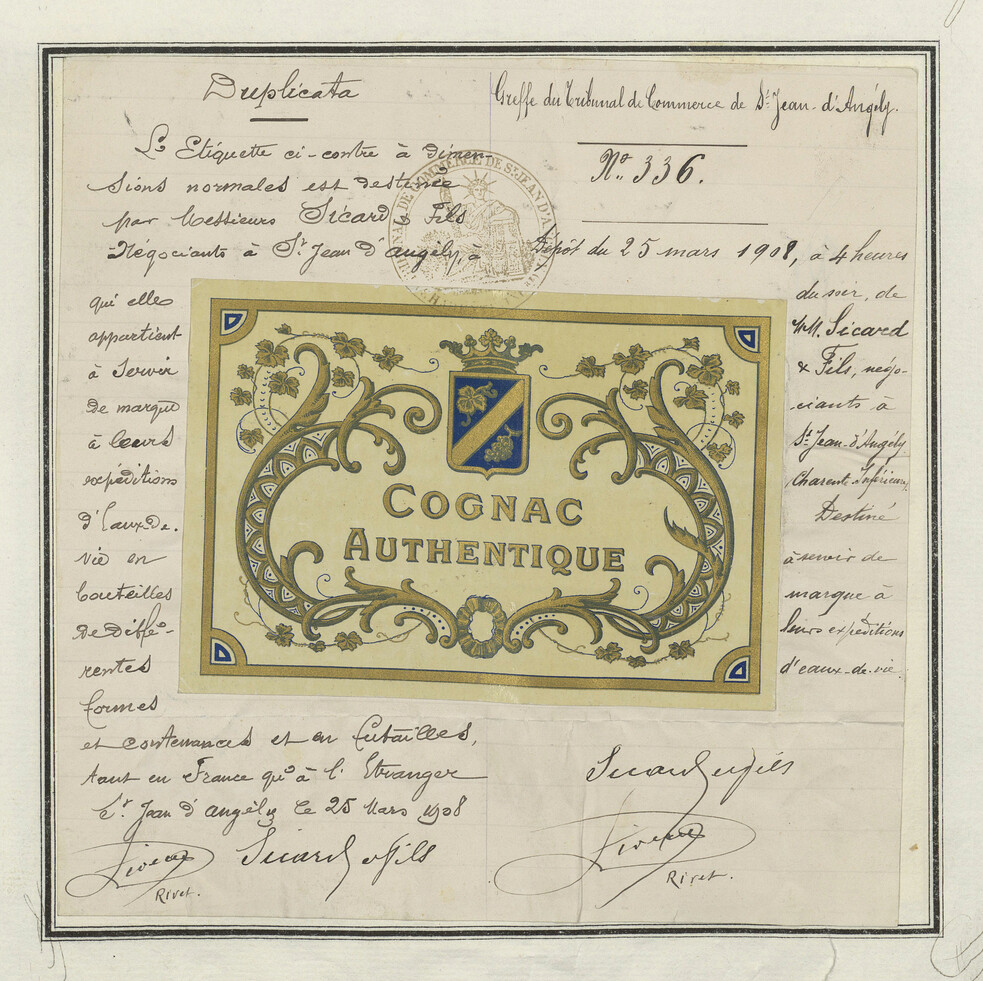 Duplicata
L'Etiquette ci-contre à dimen-
sions normales est destinée
par Messieurs Sicard & Fils
Négociants à St Jean d'Angély, à
qui elle
appartient
à servir
de marque
à leurs
expéditions
d'Eaux-de-
vie en
bouteilles
de diffé-
rentes
formes
et contenances et en futailles,
tant en France qu'à l'Etranger
St Jean d'Angély le 25 Mars 1908
Sicard & Fils
Rivet.
Greffe du Tribunal de Commerce de St Jean-d'Angély.
No 336.
Dépôt du 25 mars 1908, à 4 heures
du soir, de
MM. Sicard
& Fils, négo-
ciants à
St Jean-d'Angély
Charente-Inférieure,
Destiné
à servir de
marque à
leurs expéditions
d'eaux-de-vie.
Sicard & Fils
Rivet.
COGNAC
AUTHENTIQUE
DE COMMERCE DE ST JEAN D'A